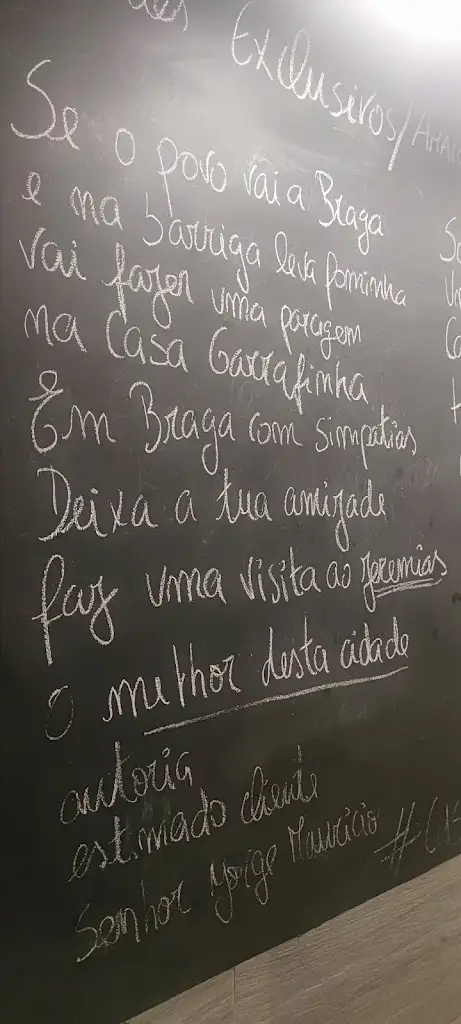 Exclusivos/
Se o povo vai a Braga
e na barriga leva fominha
vai fazer uma paragem
na Casa Garrafinha
Em Braga com simpatias
Deixa a tua amizade
faz uma visita ao Jeremias
O melhor desta cidade
autoria
estimado cliente
Senhor Jorge Maurício
#